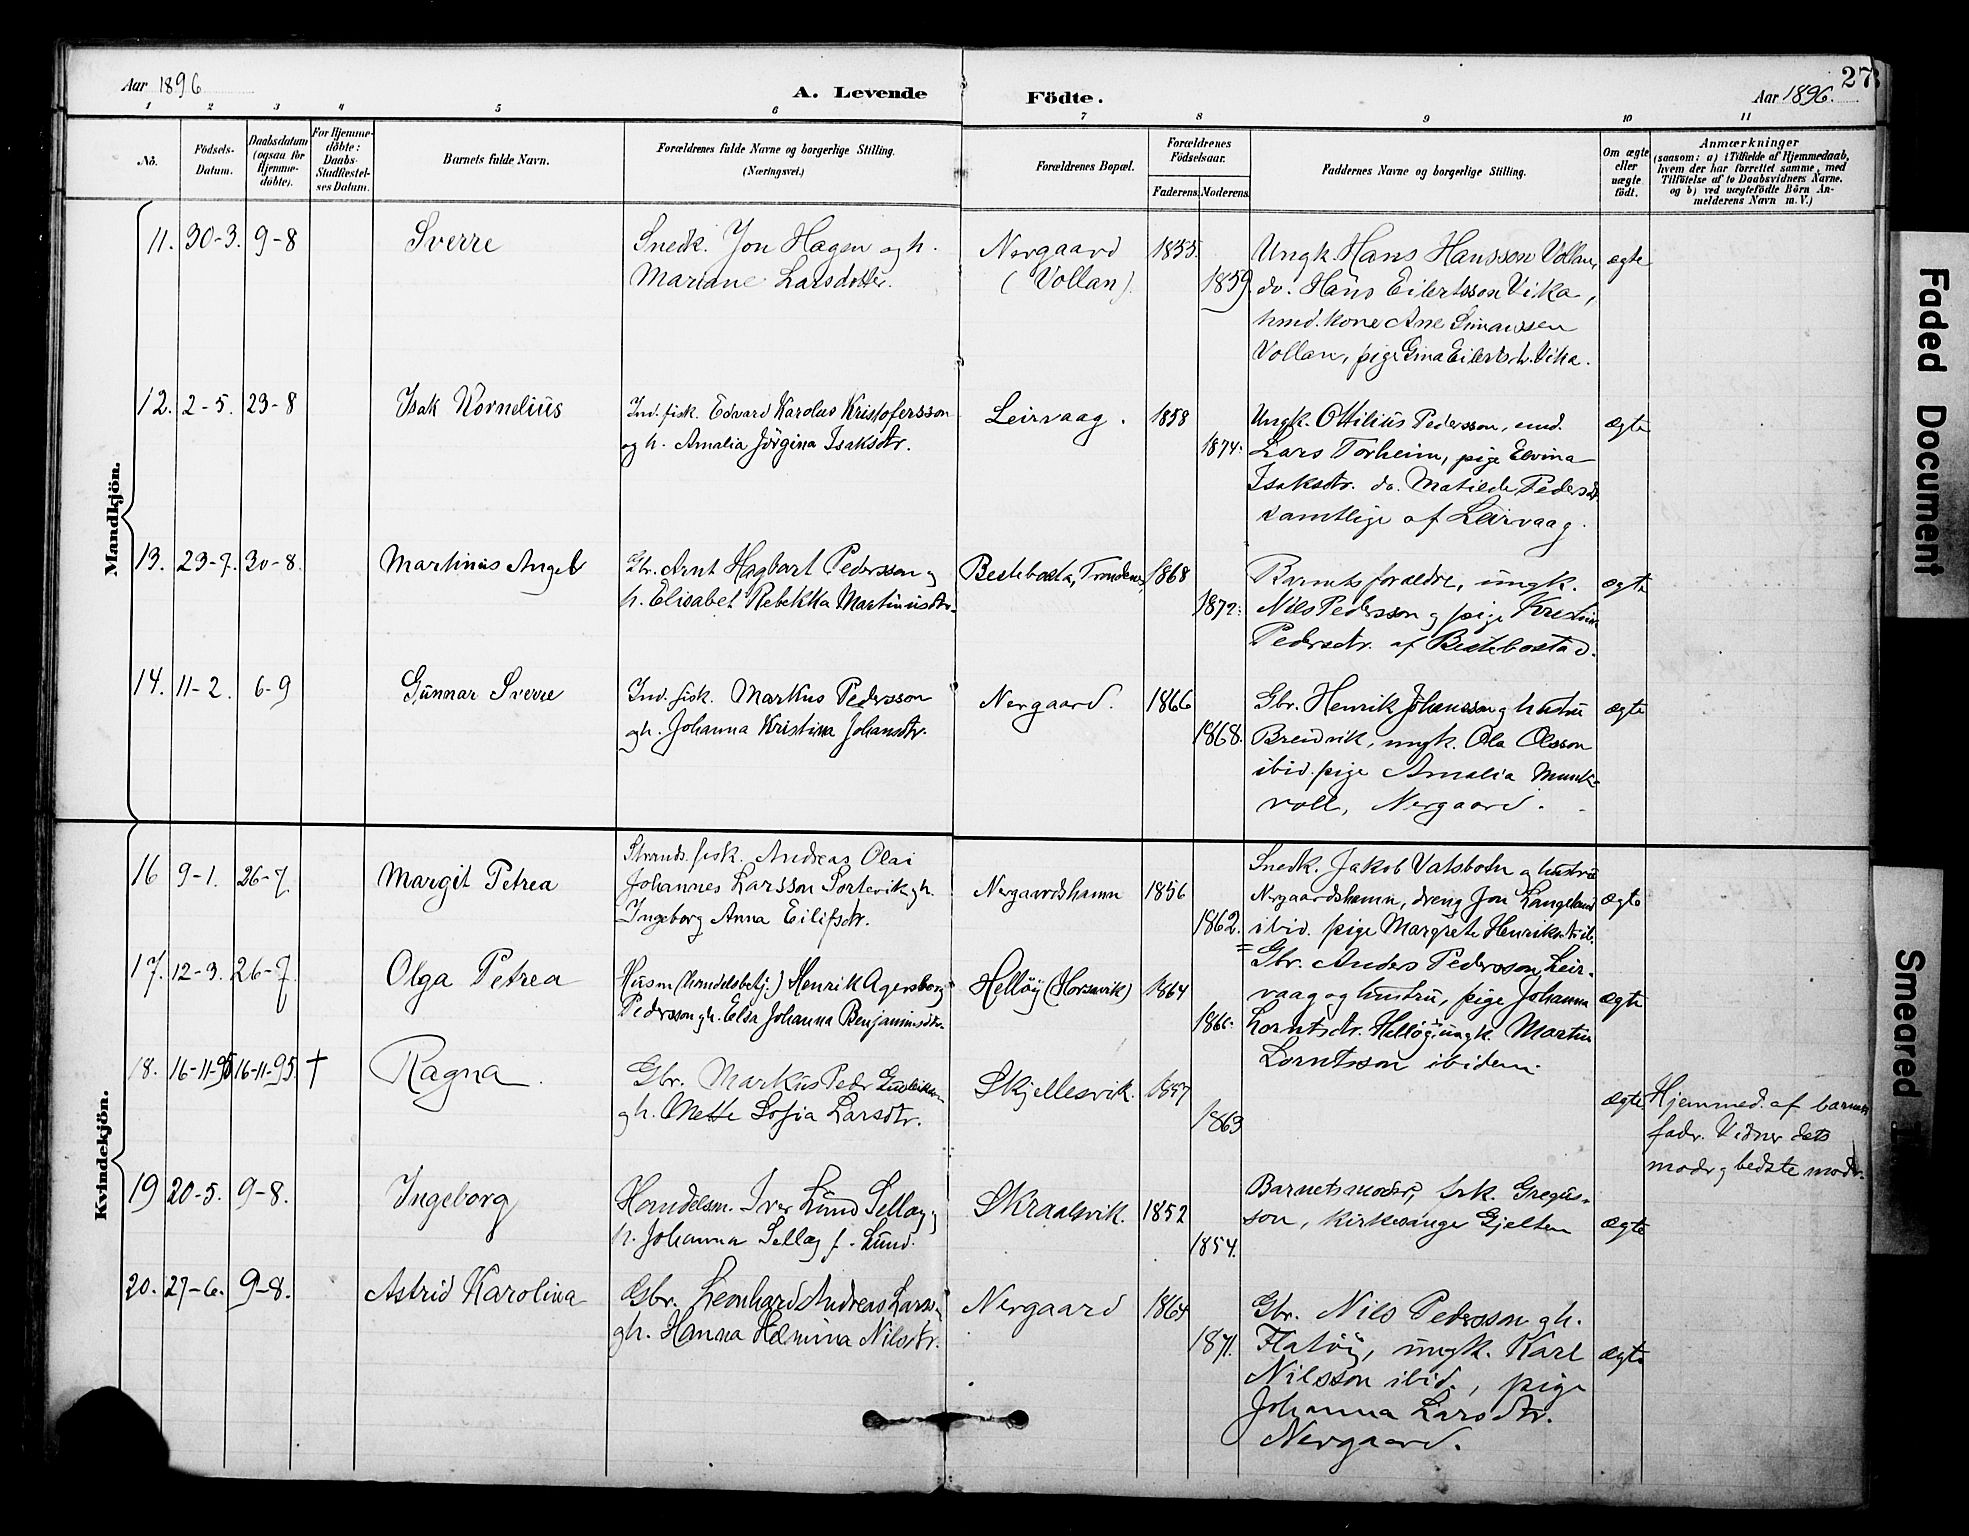 Aar 1896
A. Levende Födte.
Aar 1896.
27
1 2 3 4 5 6 7 8 9 10 11
No.
Födsels-Datum.
Daabsdatum (ogsaa for Hjemme-döbte).
For Hjemme-döbte: Daabs-Stadfæstel-ses Datum.
Barnets fulde Navn.
Forældrenes fulde Navne og borgerlige Stilling. (Næringsvei.)
Forældrenes Bopæl.
Forældrenes Födselsaar.
Faderens. Moderens.
Faddernes Navne og borgerlige Stilling.
Om ægte eller uægte födt.
Anmærkninger
(saasom: a) i Tilfælde af Hjemmedaab,
hvem der har forrettet samme, med
Tilföielse af to Daabsvidners Navne.
og b) ved uægtefödte Börn An-
melderens Navn m. V.)
Mandkjön.
11. 30-3. 9-8 Sverre
Snedk. Jon Hagen og h.
Mariane Larsdotter.
Nergaard
(Vollan)
1855.
1859.
Ungk. Hans Hansson Vollan,
do. Hans Eilertsson Vika,
hmd. kone Ane Simonssen
Vollan, pige Gina Eilertsd. Vika.
ægte
12. 2-5. 23-8 Isak Kornelius
Ind. fisk. Edvard Karolus Kristofersson
og h. Amalia Jörgina Isaksdtr.
Leirvaag.
1858
1874.
Ungk. Ottilius Pedersson, emd.
Lars Torheim, pige Elvina
Isaksdtr. do. Matilde Pedersd.
samtlige af Leirvaag.
ægte
13. 23-7. 30-8. Martinus Angel
Gbr. Arnt Hagbart Pedersson og
h. Elisabet Rebekka Martinusdtr.
Bestebostad, Trondenes
1868
1872.
Barnets forældre, ungk.
Nils Pedersson og pige Kristine
Pedersdtr. af Bestebostad.
ægte
14. 11-2. 6-9 Gunnar Sverre
Ind. fisk. Markus Pedersson
og h. Johanna Kristina Johansdtr.
Nergaard.
1866
1868.
Gbr. Henrik Johansson og hustru
Breidvik, ungk. Ola Olsson
ibid. pige Amalia Munk-
voll, Nergaard.
ægte
Kvindekjön.
16 9-1. 26-7 Margit Petrea
Strands. fisk. Andreas Olai
Johannes Larsson Sortevik og h.
Ingeborg Anna Eilifsdtr.
Nergaardshamn
1856
1862.
Snedk. Jakob Vatsbotn og hustru
Nergaardshamn, dreng Jon Langeland
ibid. pige Margrete Henriksdtr. ib.
ægte
17. 12-3. 26-7. Olga Petrea
Husm (handelsbetj.) Henrik Agersborg
Pedersson og h. Elsa Johanna Benjaminsdtr.
Hellöy (Horsevik)
1864
1866.
Gbr. Anders Pedersson Leir-
vaag og hustru, pige Johanna
Lorntsdtr. Hellöy, ungk. Martin
Lorntsson ibidem.
ægte
18. 16-11-95 16-11-95. † Ragna.
Gbr. Markus Peder
og h. Mette Sofia Larsdtr.
Skjellesvik.
1857
1863
ægte
Hjemmed. af barnets
fader. Vidner dets
moder og bedstemoder.
19 20-5. 9-8. Ingeborg
Handelsm. Iver Lund Sellæg og
h. Johanna Sellæg f. Lund.
Skraalsvik.
1852
1854.
Barnets moder, frk. Gregus-
son, kirkesanger Gjelten
ægte
20. 27-6. 9-8. Astrid Karolina
Gbr. Leonhard Andreas Larss.
og h. Hanna Hemina Nilsdtr.
Nergaard
1864
1871.
Gbr. Nils Pedersson og h.
Flatöy, ungk. Karl
Nilsson ibid., pige
Johanna Larsdtr.
Nergaard.
ægte
Faded Document
Smeared